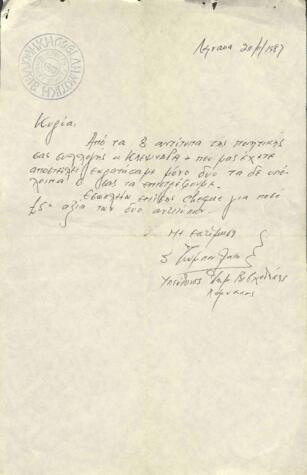 ΔΗΜΟΤΙΚΗ ΒΙΒΛΙΟΘΗΚΗ
Λάρνακα 20/1/1987
Κυρία,
Από τα 8 αντίτυπα της ποιητικής
σας συλλογής « ΚΛΕΨΥΔΡΑ » που μας έχετε
αποστείλει κρατήσαμε μόνο δύο τα δε υπό-
λοιπα σας τα επιστρέφουμε.
Εσωκλείω επίσης cheque για ποσό
£5- αξία των δύο αντιτύπων.
Με εκτίμηση
Υπεύθυνος Δημ. Βιβλιοθήκης
Λάρνακας